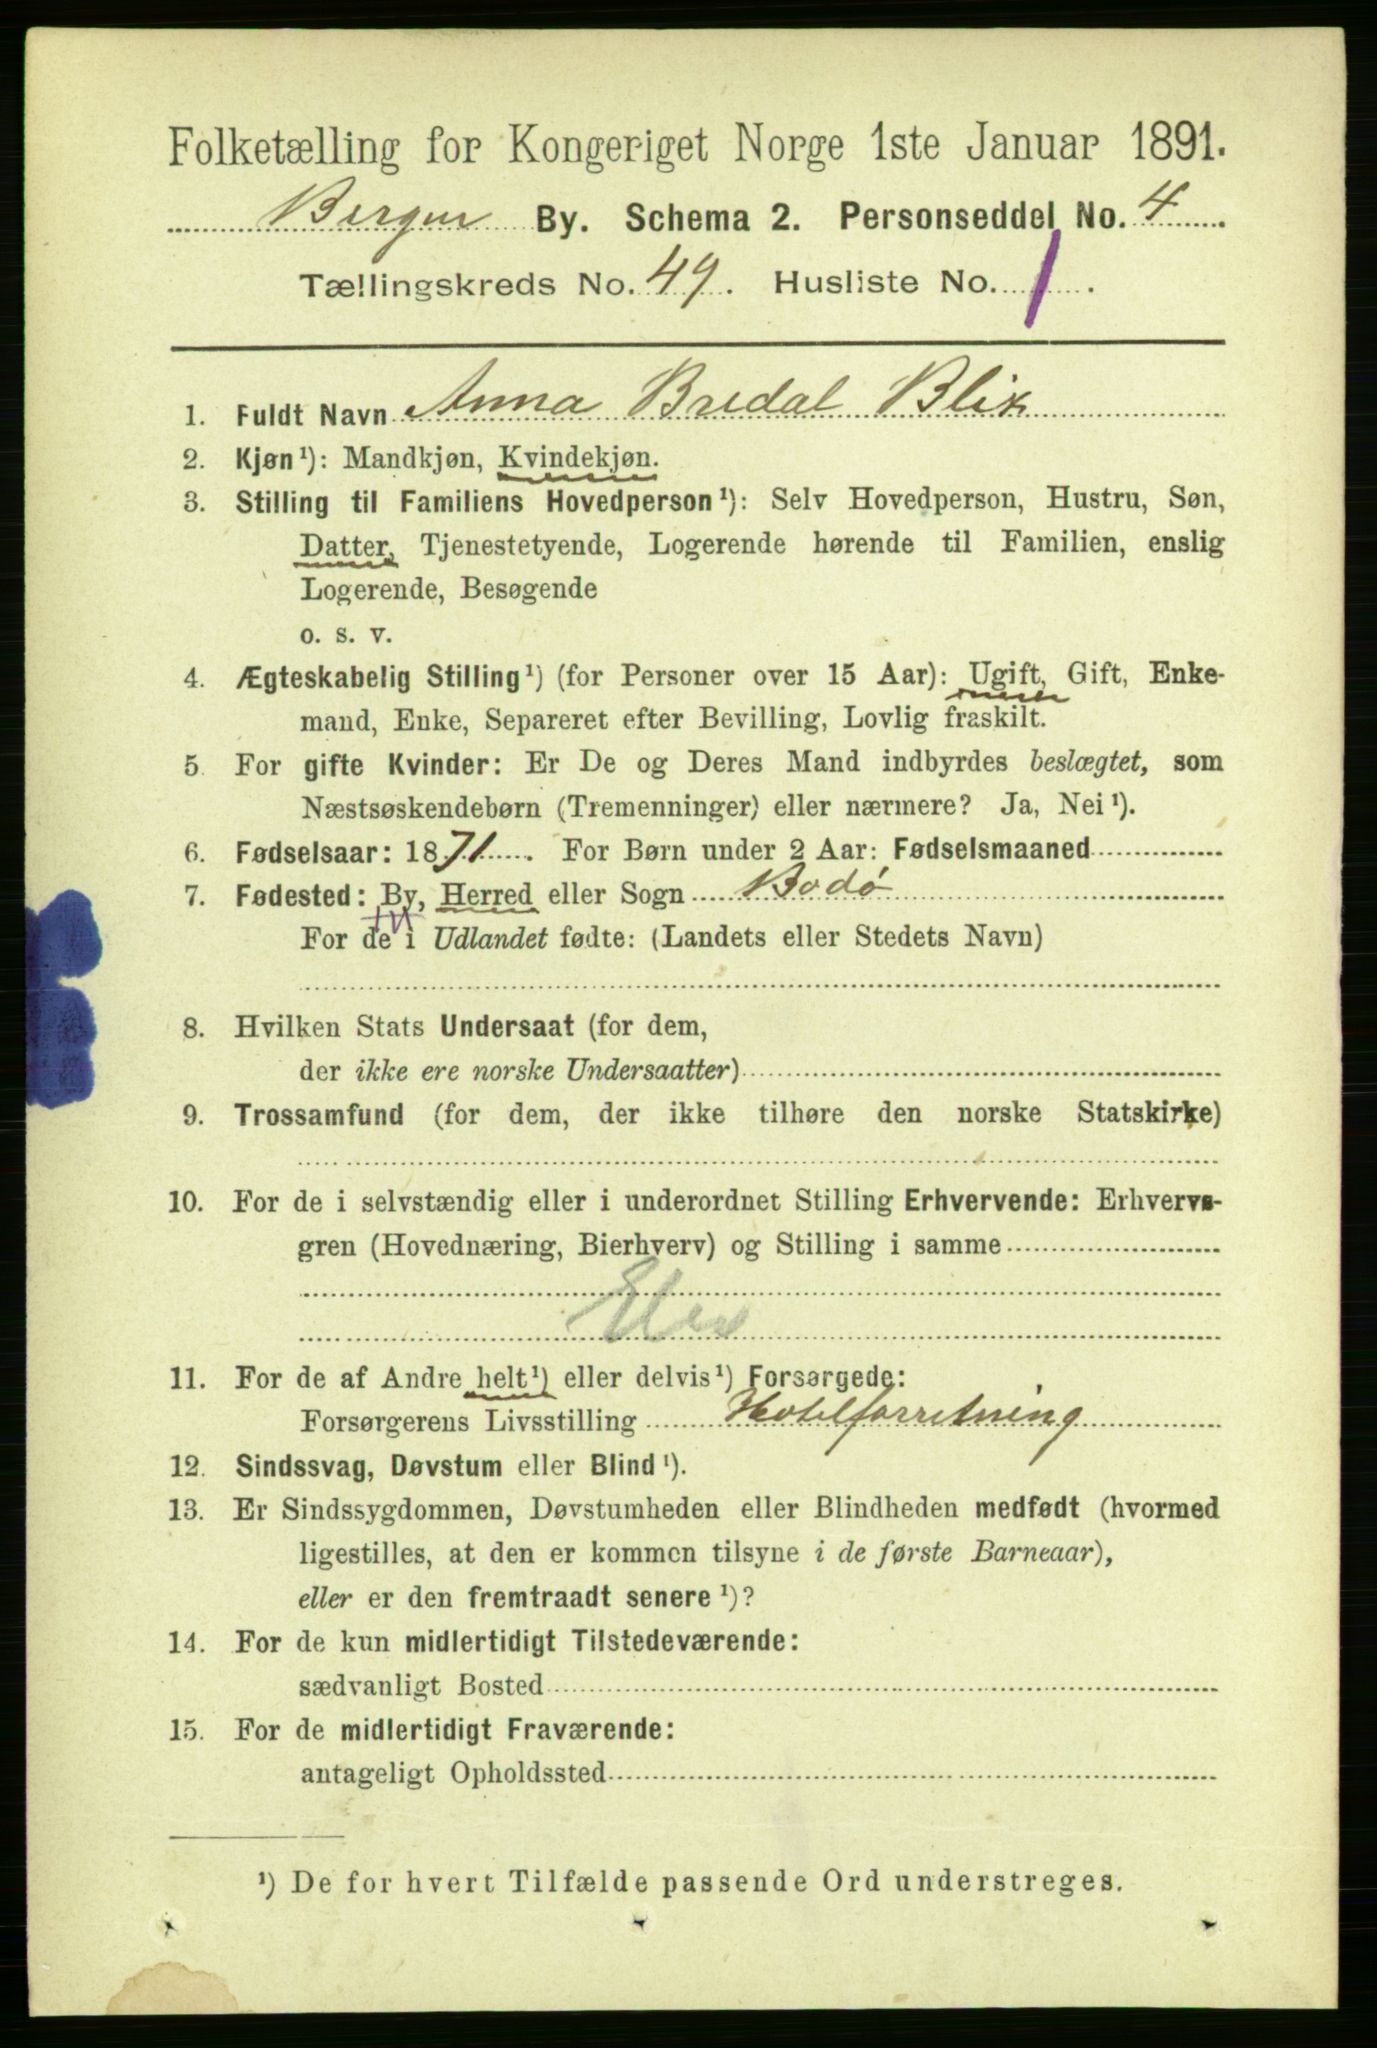 Folketælling for Kongeriget Norge 1ste Januar 1891.
Bergen By. Schema 2. Personseddel No. 4
Tællingskreds No. 49. Husliste No. 1.
1. Fuldt Navn Anna Bredal Blix
2. Kjøn¹): Mandkjøn, Kvindekjøn.
3. Stilling til Familiens Hovedperson¹): Selv Hovedperson, Hustru, Søn,
Datter, Tjenestetyende, Logerende hørende til Familien, enslig
Logerende, Besøgende
o. s. v.
4. Ægteskabelig Stilling¹) (for Personer over 15 Aar): Ugift, Gift, Enke-
mand, Enke, Separeret efter Bevilling, Lovlig fraskilt.
5. For gifte Kvinder: Er De og Deres Mand indbyrdes beslægtet, som
Næstsøskendebørn (Tremenninger) eller nærmere? Ja, Nei¹).
6. Fødselsaar: 1871. For Børn under 2 Aar: Fødselsmaaned
7. Fødested: By, Herred eller Sogn Bodø
For de i Udlandet fødte: (Landets eller Stedets Navn)
8. Hvilken Stats Undersaat (for dem,
der ikke ere norske Undersaatter)
9. Trossamfund (for dem, der ikke tilhøre den norske Statskirke)
10. For de i selvstændig eller i underordnet Stilling Erhvervende: Erhvervs-
gren (Hovednæring, Bierhverv) og Stilling i samme
11. For de af Andre helt¹) eller delvis¹) Forsørgede:
Forsørgerens Livsstilling Hotelforretning
12. Sindssvag, Døvstum eller Blind¹).
13. Er Sindssygdommen, Døvstumheden eller Blindheden medfødt (hvormed
ligestilles, at den er kommen tilsyne i de første Barneaar),
eller er den fremtraadt senere¹)?
14. For de kun midlertidigt Tilstedeværende:
sædvanligt Bosted
15. For de midlertidigt Fraværende:
antageligt Opholdssted
¹) De for hvert Tilfælde passende Ord understreges.